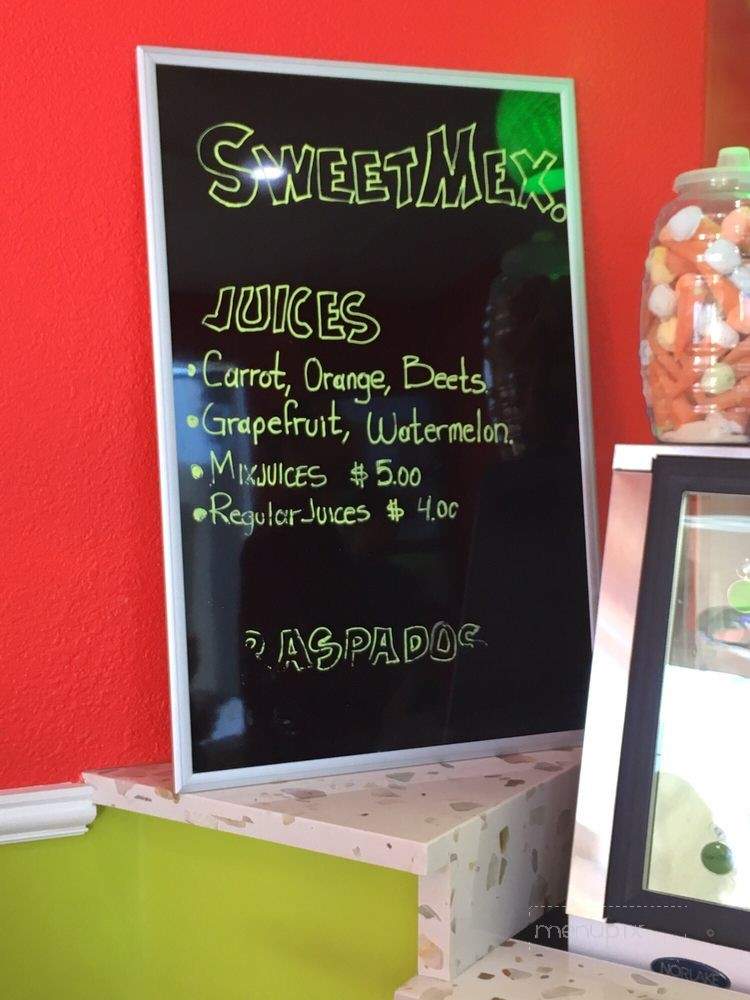 SWEETMEX.
JUICES
• Carrot, Orange, Beets.
• Grapefruit, Watermelon.
• MIXJUICES $ 5.00
• Regular Juices $ 4.00
RASPADOS
menupix
NORLAKE